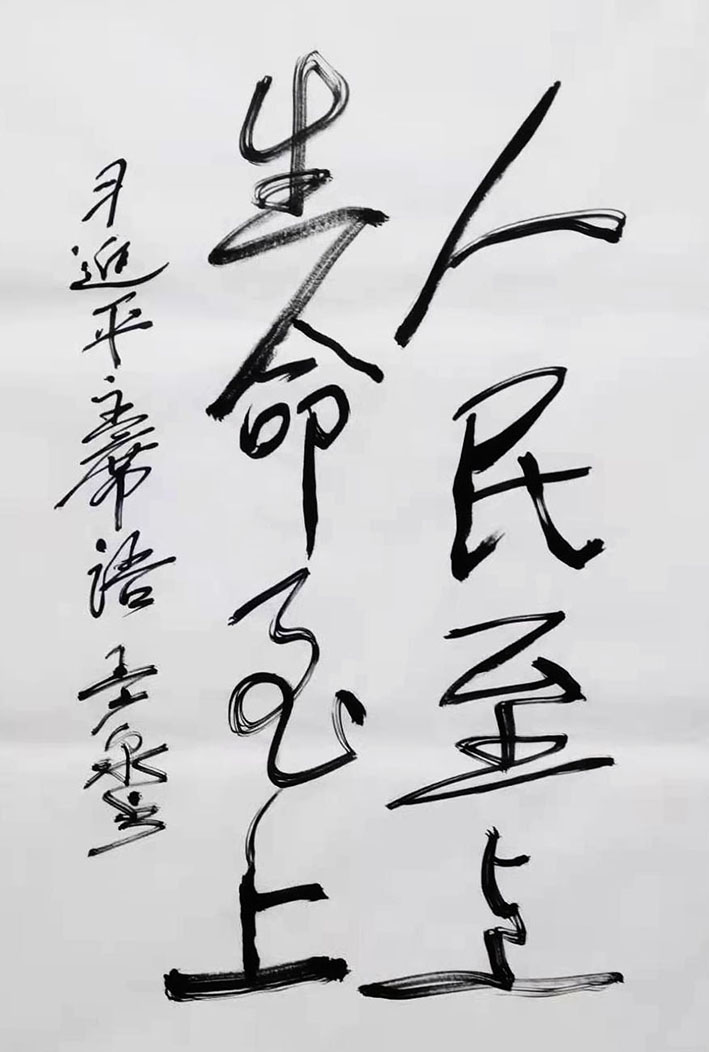 人民至上
生命至上
习近平主席语